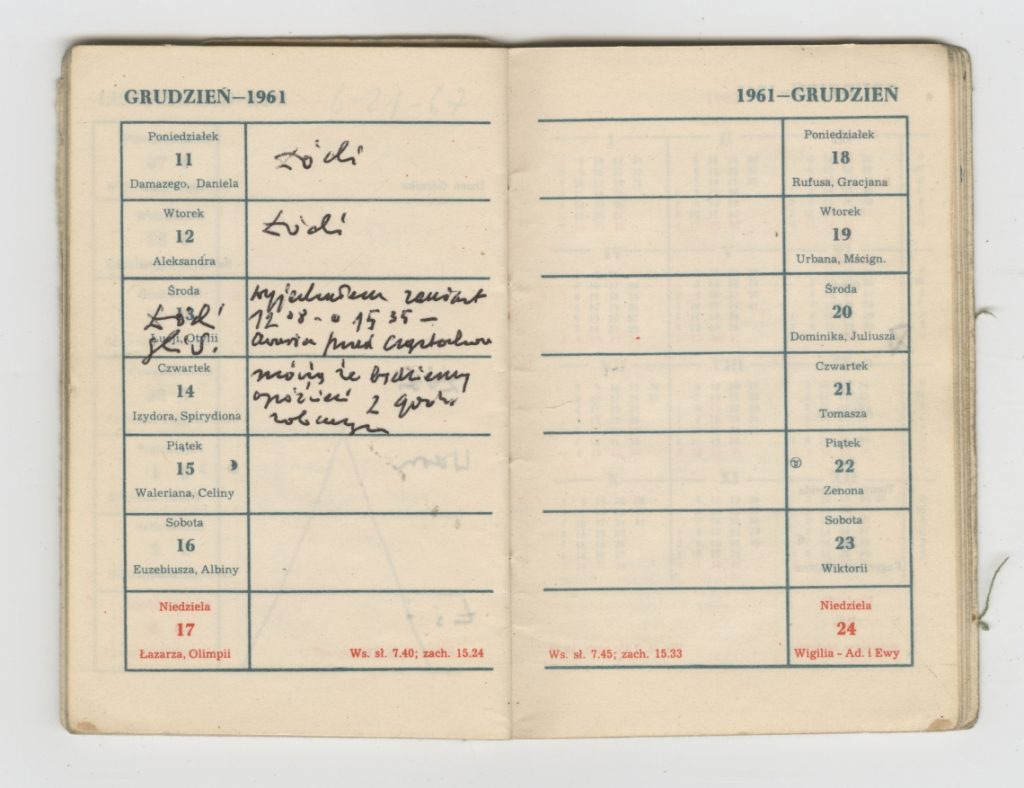 GRUDZIEŃ—1961
Poniedziałek
11
Damazego, Daniela
Łódź
Wtorek
12
Aleksandra
Łódź
Środa
13
Łucji, Otylii
Łódź
wyjechałem zamiast
12 08 15 35 —
awaria przed Częstochową
Czwartek
14
Izydora, Spirydiona
mówią że będziemy
opóźnieni 2 godz.
Piątek
15
Waleriana, Celiny
Sobota
16
Euzebiusza, Albiny
Niedziela
17
Łazarza, Olimpii
Ws. sł. 7.40; zach. 15.24
1961—GRUDZIEŃ
Poniedziałek
18
Rufusa, Gracjana
Wtorek
19
Urbana, Mścign.
Środa
20
Dominika, Juliusza
Czwartek
21
Tomasza
Piątek
22
Zenona
Sobota
23
Wiktorii
Niedziela
24
Wigilia - Ad. i Ewy
Ws. sł. 7.45; zach. 15.33